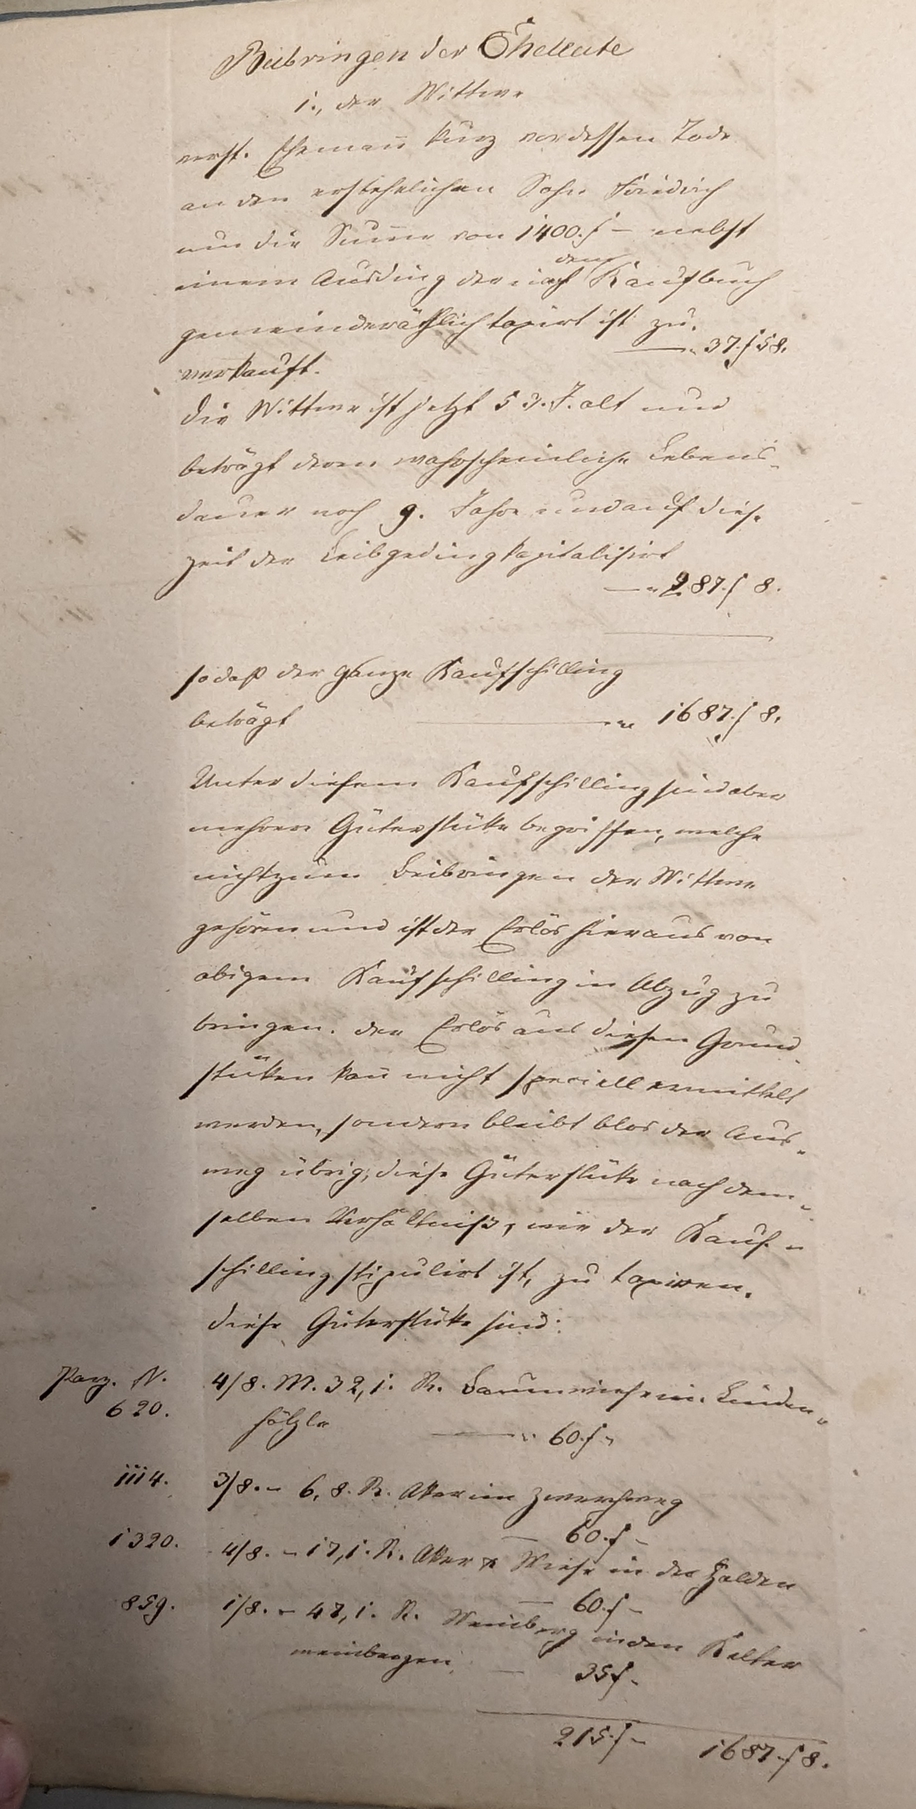 Beibringen der Eheleute
1., der Wittwe
verst. Ehemann kurz vor dessen Tode
an den erstehelichen Sohn Friedrich
um die Summe von 1400.f – nebst
einem Ausding der nach dem Kaufbuch
gemeinderäthlich taxirt ist zu.
—„ 37.f 58.
verkauft.
Die Wittwe ist jetzt 53. J. alt und
beträgt deren wahrscheinliche Lebens-
dauer noch 9. Jahre und auf diese
Zeit der Leibgeding kapitalisirt
—„ 287.f 8.
so daß der ganze Kaufschilling
beträgt —„ 1687.f 8.
Unter diesem Kaufschilling sind aber
mehrere Güterstüke begriffen, welche
nicht zum Beibringen der Wittwe
gehören und ist der Erlös hieraus von
obigem Kaufschilling in Abzug zu
bringen. Der Erlös aus diesen Grund-
stüken kan̄ nicht speciell ermittelt
werden, sondern bleibt blos der Aus-
weg übrig, diese Güterstüke nach dem-
selben Verhältniß, wie der Kauf-
schilling stipulirt ist, zu taxiren.
Diese Güterstüke sind:
Parz. N.
620. 4/8. M. 32,1. R. Baumwiese im Linden-
hölzle —„ 60.f –
1114. 3/8. – 6,8. R. Aker im Zwerchweg
— 60.f –
1320. 4/8. – 17,1. R. Aker & Wiese in der Halden
— 60.f –
859. 1/8. – 47,1. R. Weinberg in den Kelter
weinbergen — 35f –
215.f – 1687.f 8.